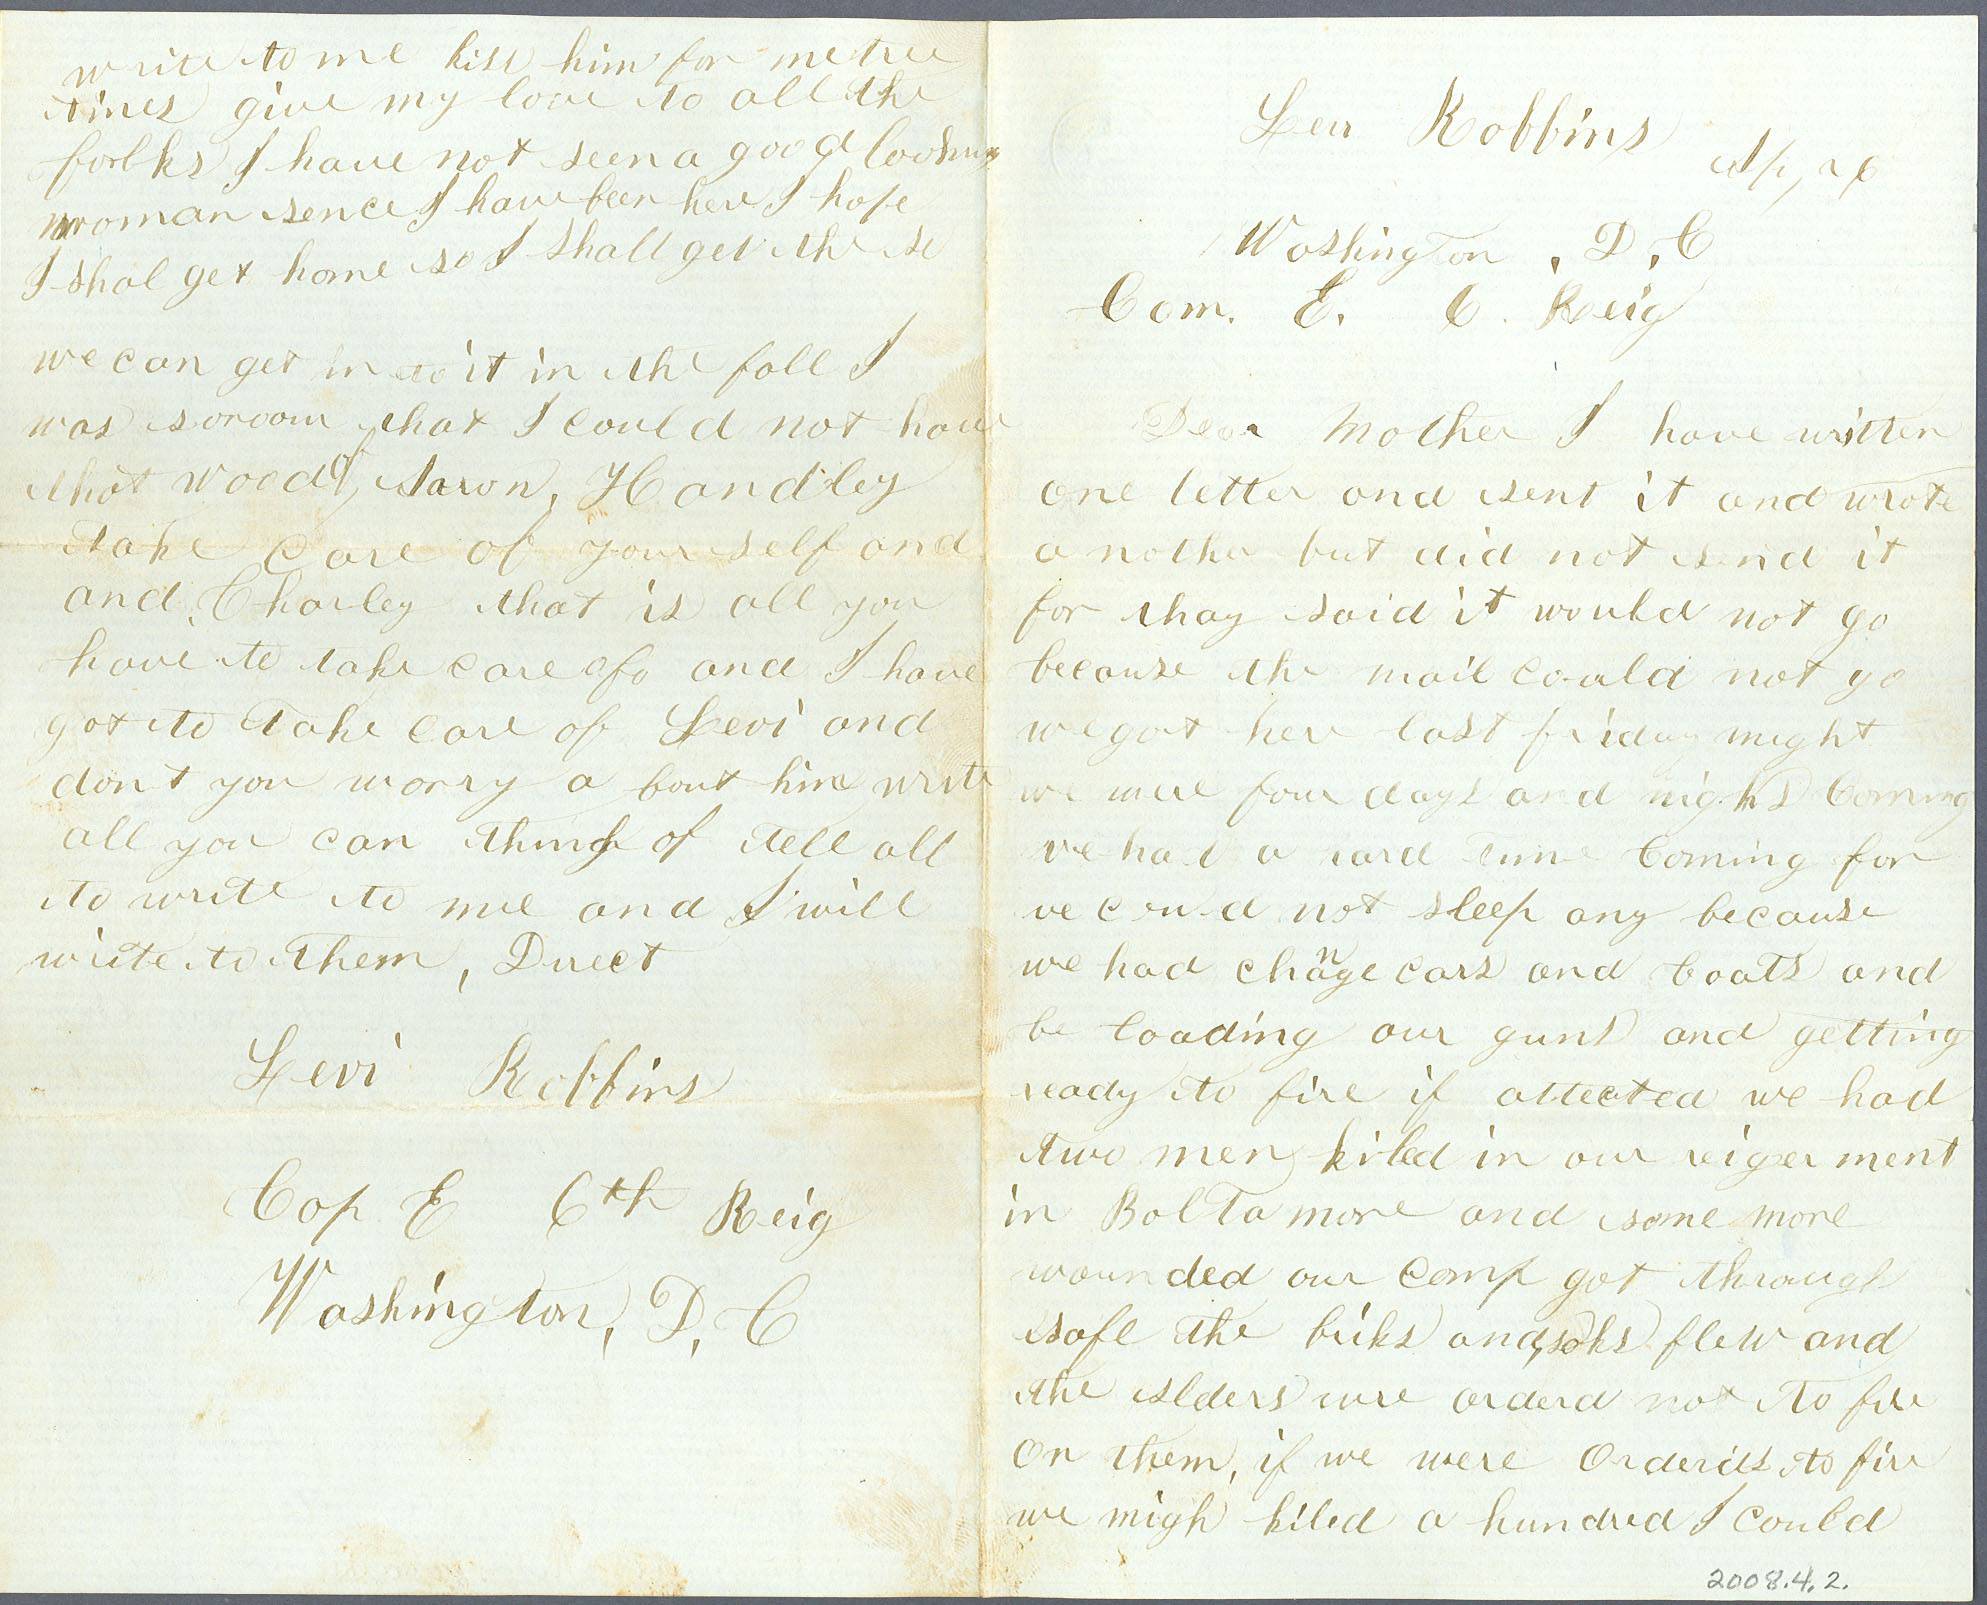 Levi Robbins
Ap, 26
Washington, D, C
Com. E. 6. Reig
Dear Mother I have written
one letter and sent it and wrote
a nother but did not send it
for thay said it would not go
because the mail could not go
we got here last friday night
we were four days and nights Coming
we had a hard time Coming for
we could not sleep any because
we had change cars and boats and
be loading our guns and getting
ready to fire if attected we had
two men kiled in our reigerment
in Baltamore and some more
wounded our comp got through
safe the briks and flew and
the slders wre orderd not to fire
on them, if we were to fire
we migh kiled a hundred I could
2008.4.2.
write to me kiss him for me tree
times give my love to all the
forlks I have not seen a good looking
woman sence I have been here I hope
I shal get home so I shall get these
we can get in to it in the fall I
was that I could not have
that wood, Aaron, Handley
take care of your self and
and Charley that is all you
have to take care of and I have
got to take care of Levi and
dont you worry a bout him write
all you can think of tell all
to write to me and I will
write to them, Direct
Levi Robbins
Cop E 6th Reig
Washington, D, C